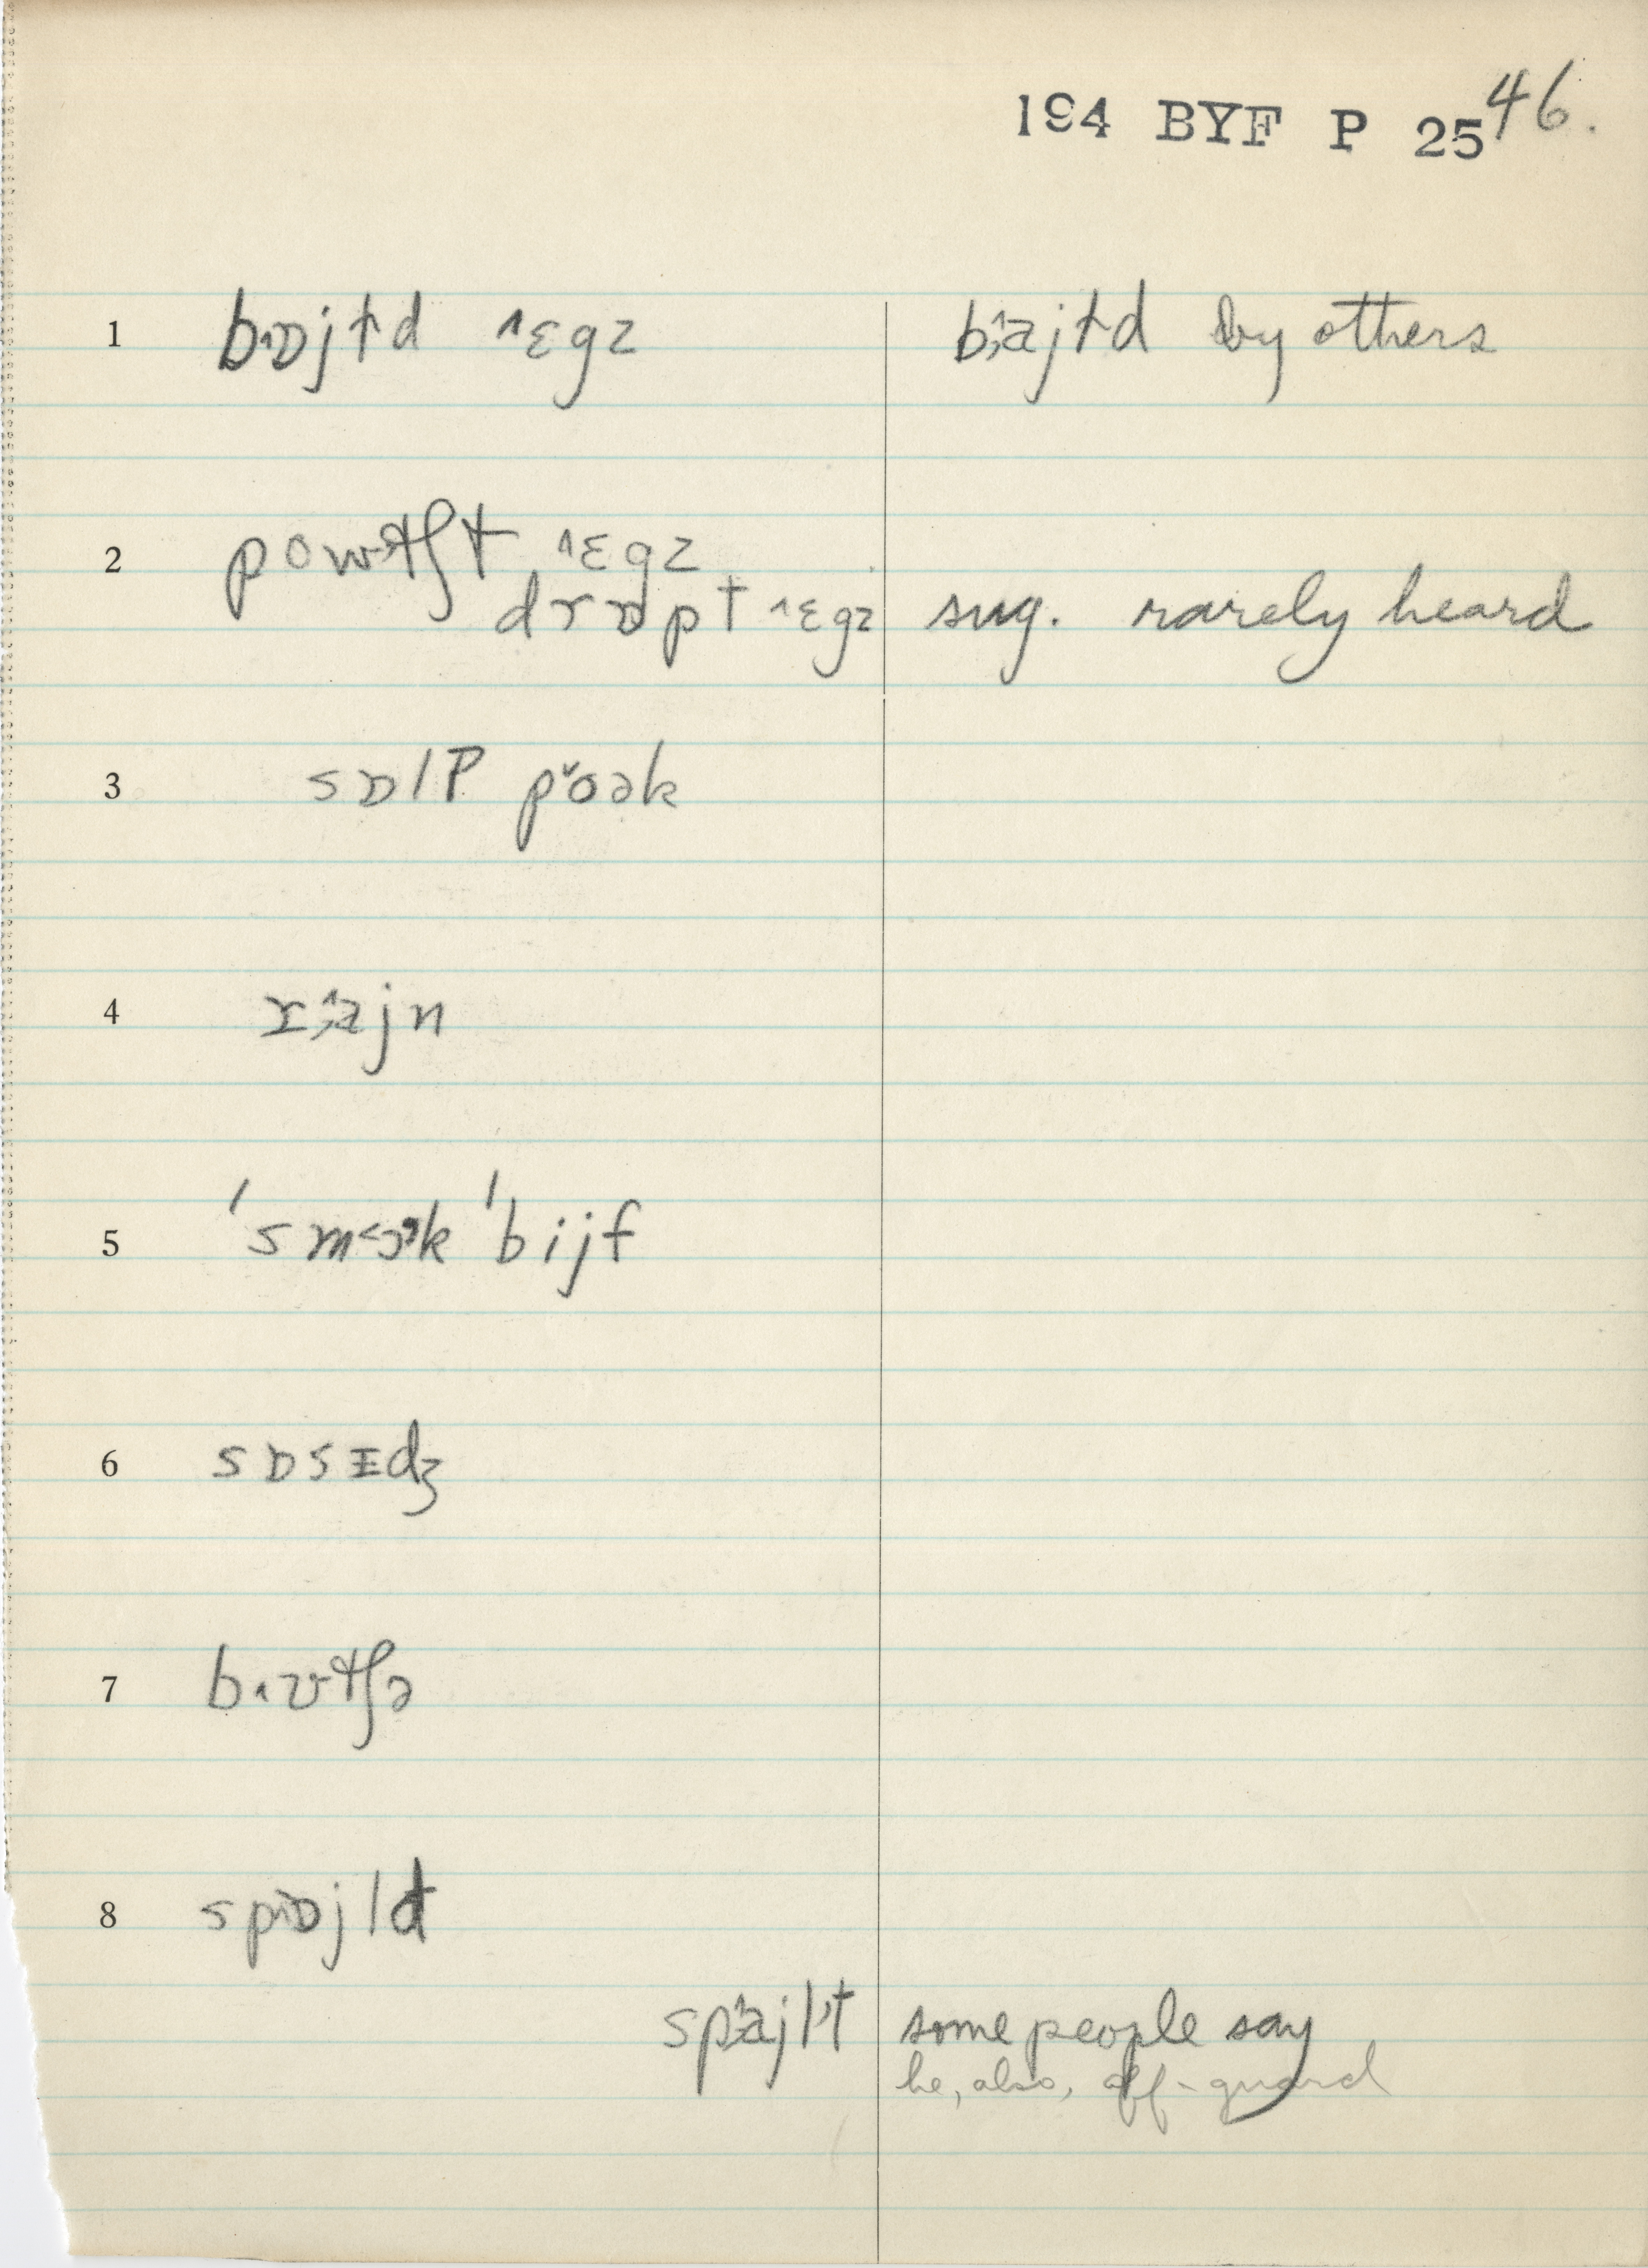 194 BYF P 25 46.
1 b˄ɒjɫd ˄ɛgz b˄ajɫd by others
2 powtʃt ˄ɛgz
drɒpt ˄ɛgz sug. rarely heard
3 sɒlP p˅oək
4 r˄ajn
5 'sm<ɔ>k 'bijf
6 sɒsɪdʒ
7 b˄ʊtʃə
8 sp˄ɒjld
sp˄ajlt some people say
he, also, off-guard